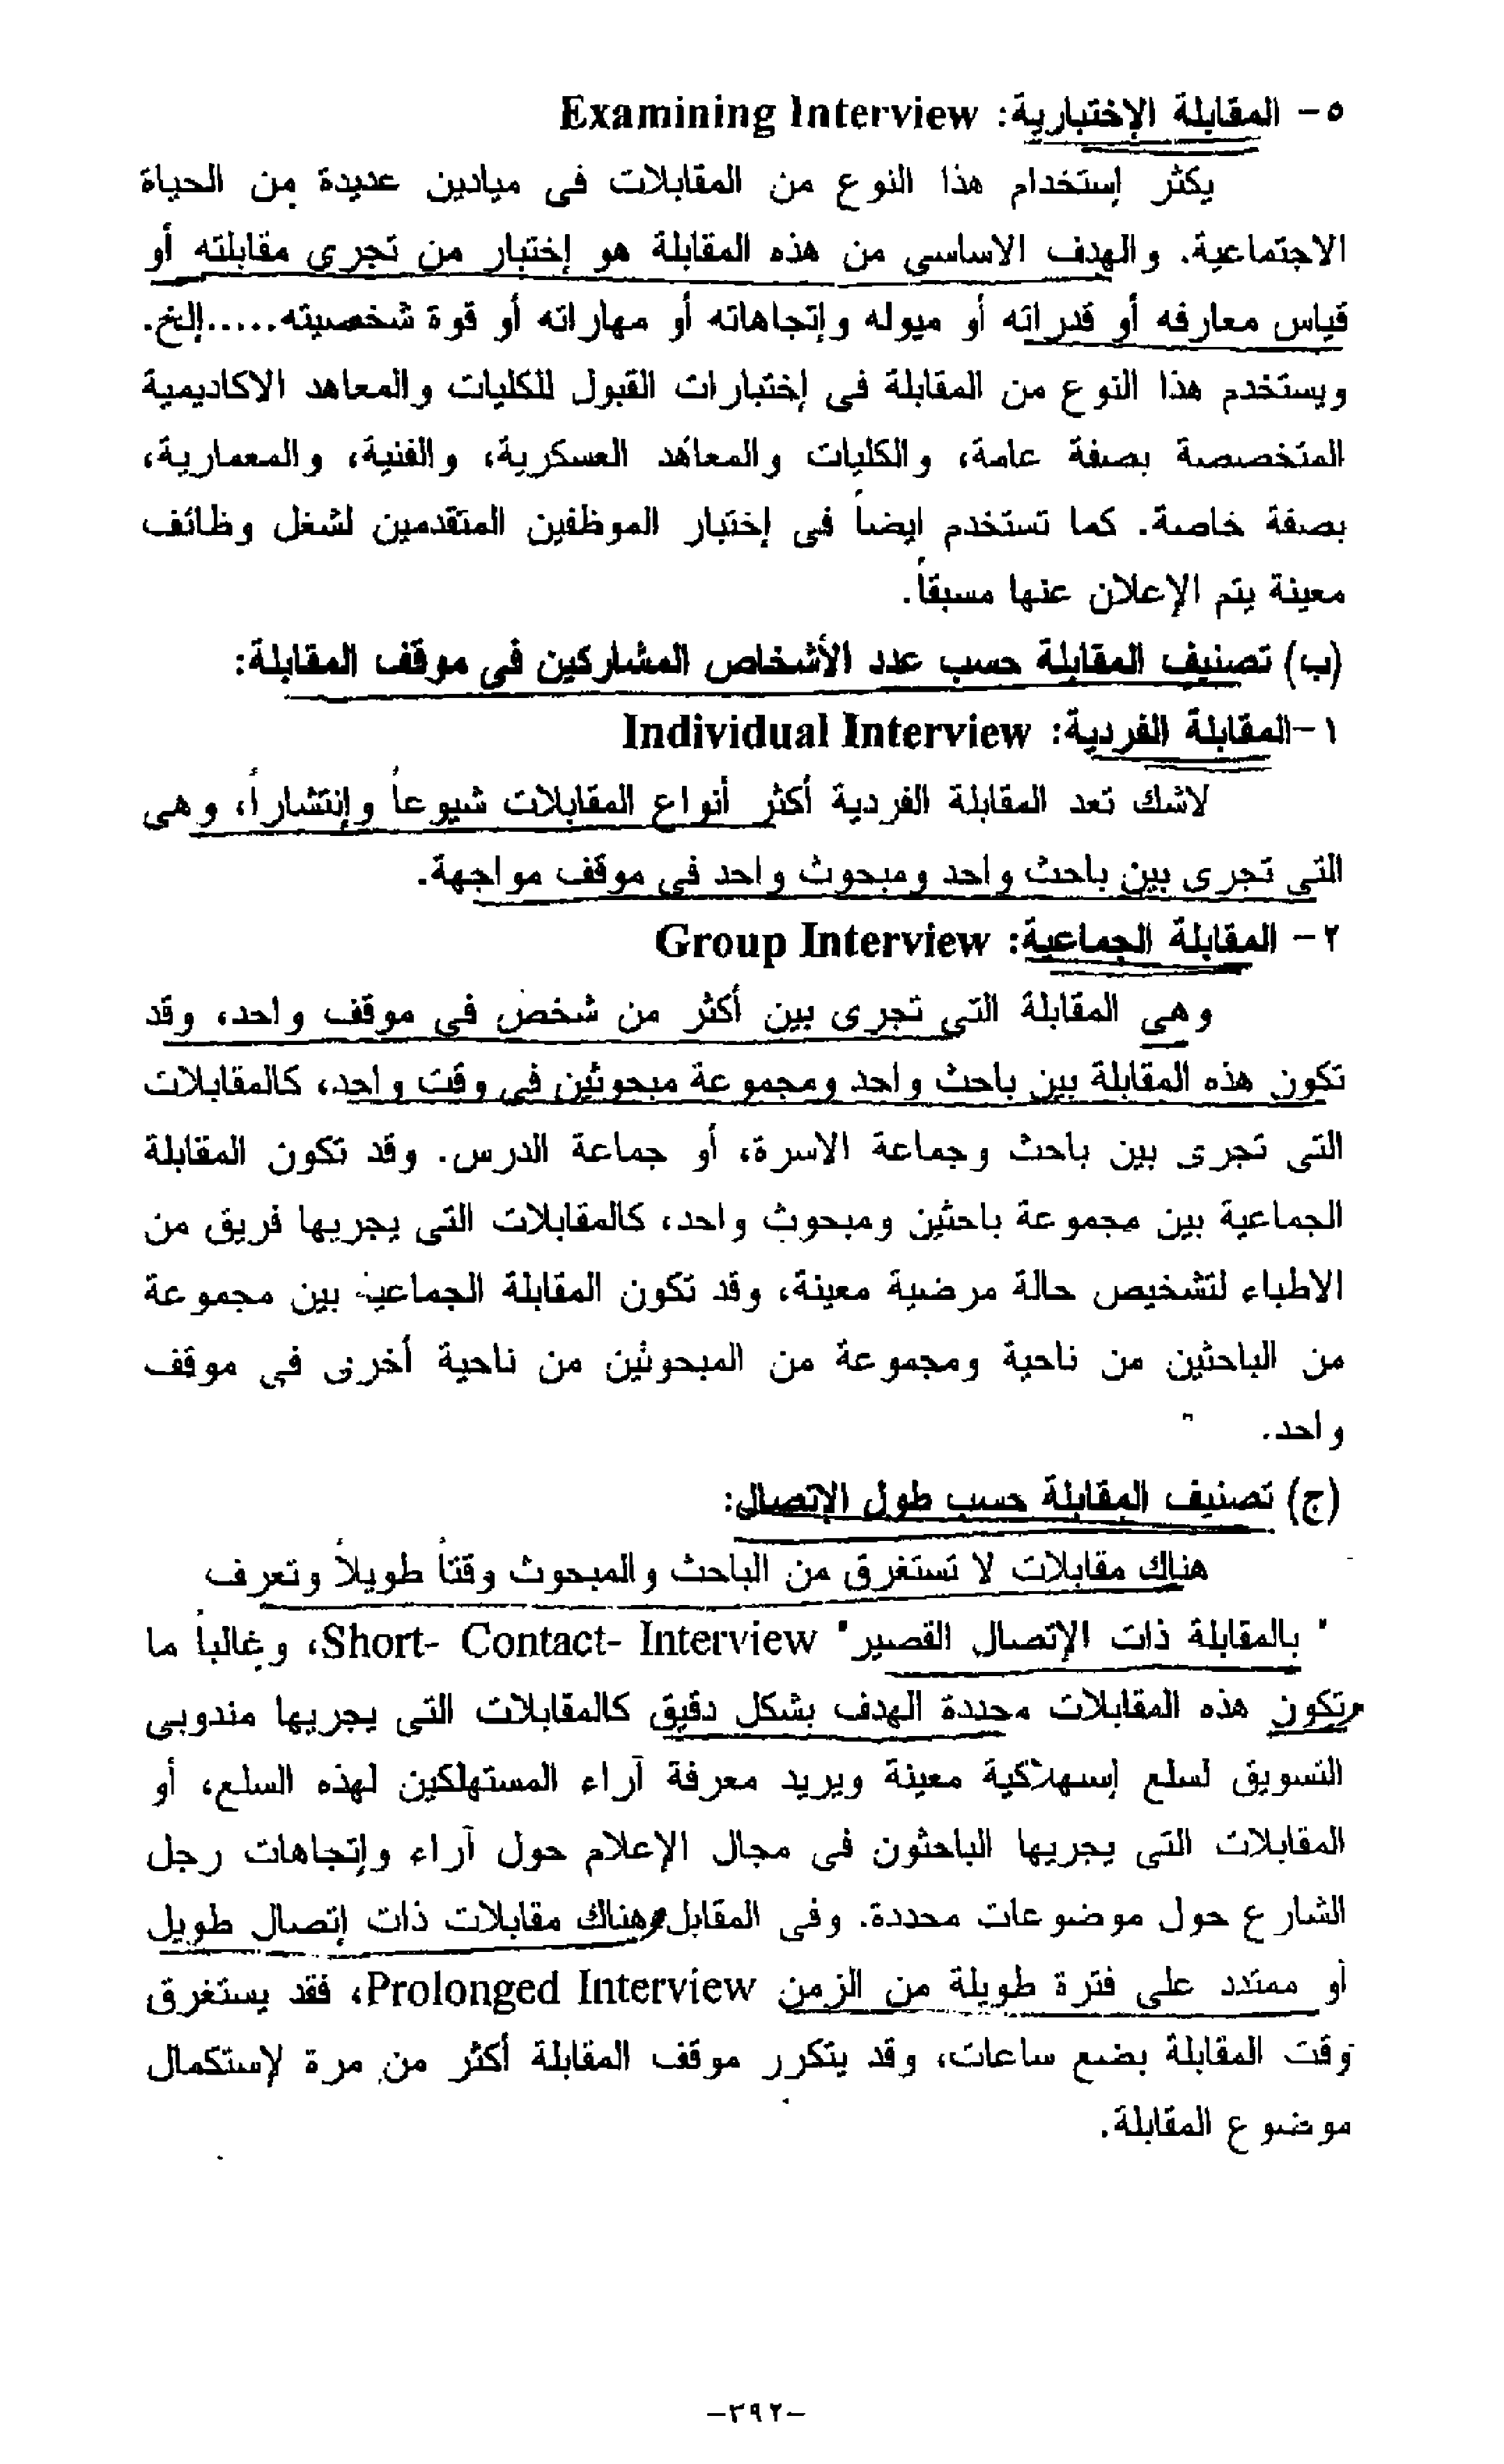 ٥- المقابلة الإختبارية: Examining Interview
يكثر إستخدام هذا النوع من المقابلات فى ميادين عديدة من الحياة
الاجتماعية. والهدف الاساسي من هذه المقابلة هو إختبار من تجرى مقابلته أو
قياس معارفه أو قدراته أو ميوله وإتجاهاته أو مهاراته أو قوة شخصيته.....إلخ.
ويستخدم هذا النوع من المقابلة فى إختبارات القبول للكليات والمعاهد الاكاديمية
المتخصصة بصفة عامة، والكليات والمعاهد العسكرية، والفنية، والمعمارية،
بصفة خاصة. كما تستخدم ايضاً فى إختبار الموظفين المتقدمين لشغل وظائف
معينة يتم الإعلان عنها مسبقاً.
(ب) تصنيف المقابلة حسب عدد الأشخاص المشاركين فى موقف المقابلة:
١-المقابلة الفردية: Individual Interview
لاشك تعد المقابلة الفردية أكثر أنواع المقابلات شيوعاً وإنتشاراً، وهى
التي تجرى بين باحث واحد ومبحوث واحد فى موقف مواجهة.
٢- المقابلة الجماعية: Group Interview
وهي المقابلة التي تجرى بين أكثر من شخص فى موقف واحد، وقد
تكون هذه المقابلة بين باحث واحد ومجموعة مبحوثين فى وقت واحد، كالمقابلات
التى تجرى بين باحث وجماعة الاسرة، أو جماعة الدرس. وقد تكون المقابلة
الجماعية بين مجموعة باحثين ومبحوث واحد، كالمقابلات التى يجريها فريق من
الاطباء لتشخيص حالة مرضية معينة، وقد تكون المقابلة الجماعية بين مجموعة
من الباحثين من ناحية ومجموعة من المبحوثين من ناحية أخرى فى موقف
واحد.
(ج) تصنيف المقابلة حسب طول الإتصال:
هناك مقابلات لا تستغرق من الباحث والمبحوث وقتاً طويلاً وتعرف
" بالمقابلة ذات الإتصال القصير" Short- Contact- Interview، وغالباً ما
وتكون هذه المقابلات محددة الهدف بشكل دقيق كالمقابلات التى يجريها مندوبى
التسويق لسلع إسهلاكية معينة ويريد معرفة آراء المستهلكين لهذه السلع، أو
المقابلات التى يجريها الباحثون فى مجال الإعلام حول آراء وإتجاهات رجل
الشارع حول موضوعات محددة. وفى المقابل وهناك مقابلات ذات إتصال طويل
أو ممتدد على فترة طويلة من الزمن Prolonged Interview، فقد يستغرق
وقت المقابلة بضع ساعات، وقد يتكرر موقف المقابلة أكثر من مرة لإستكمال
موضوع المقابلة.
-٣٩٢-